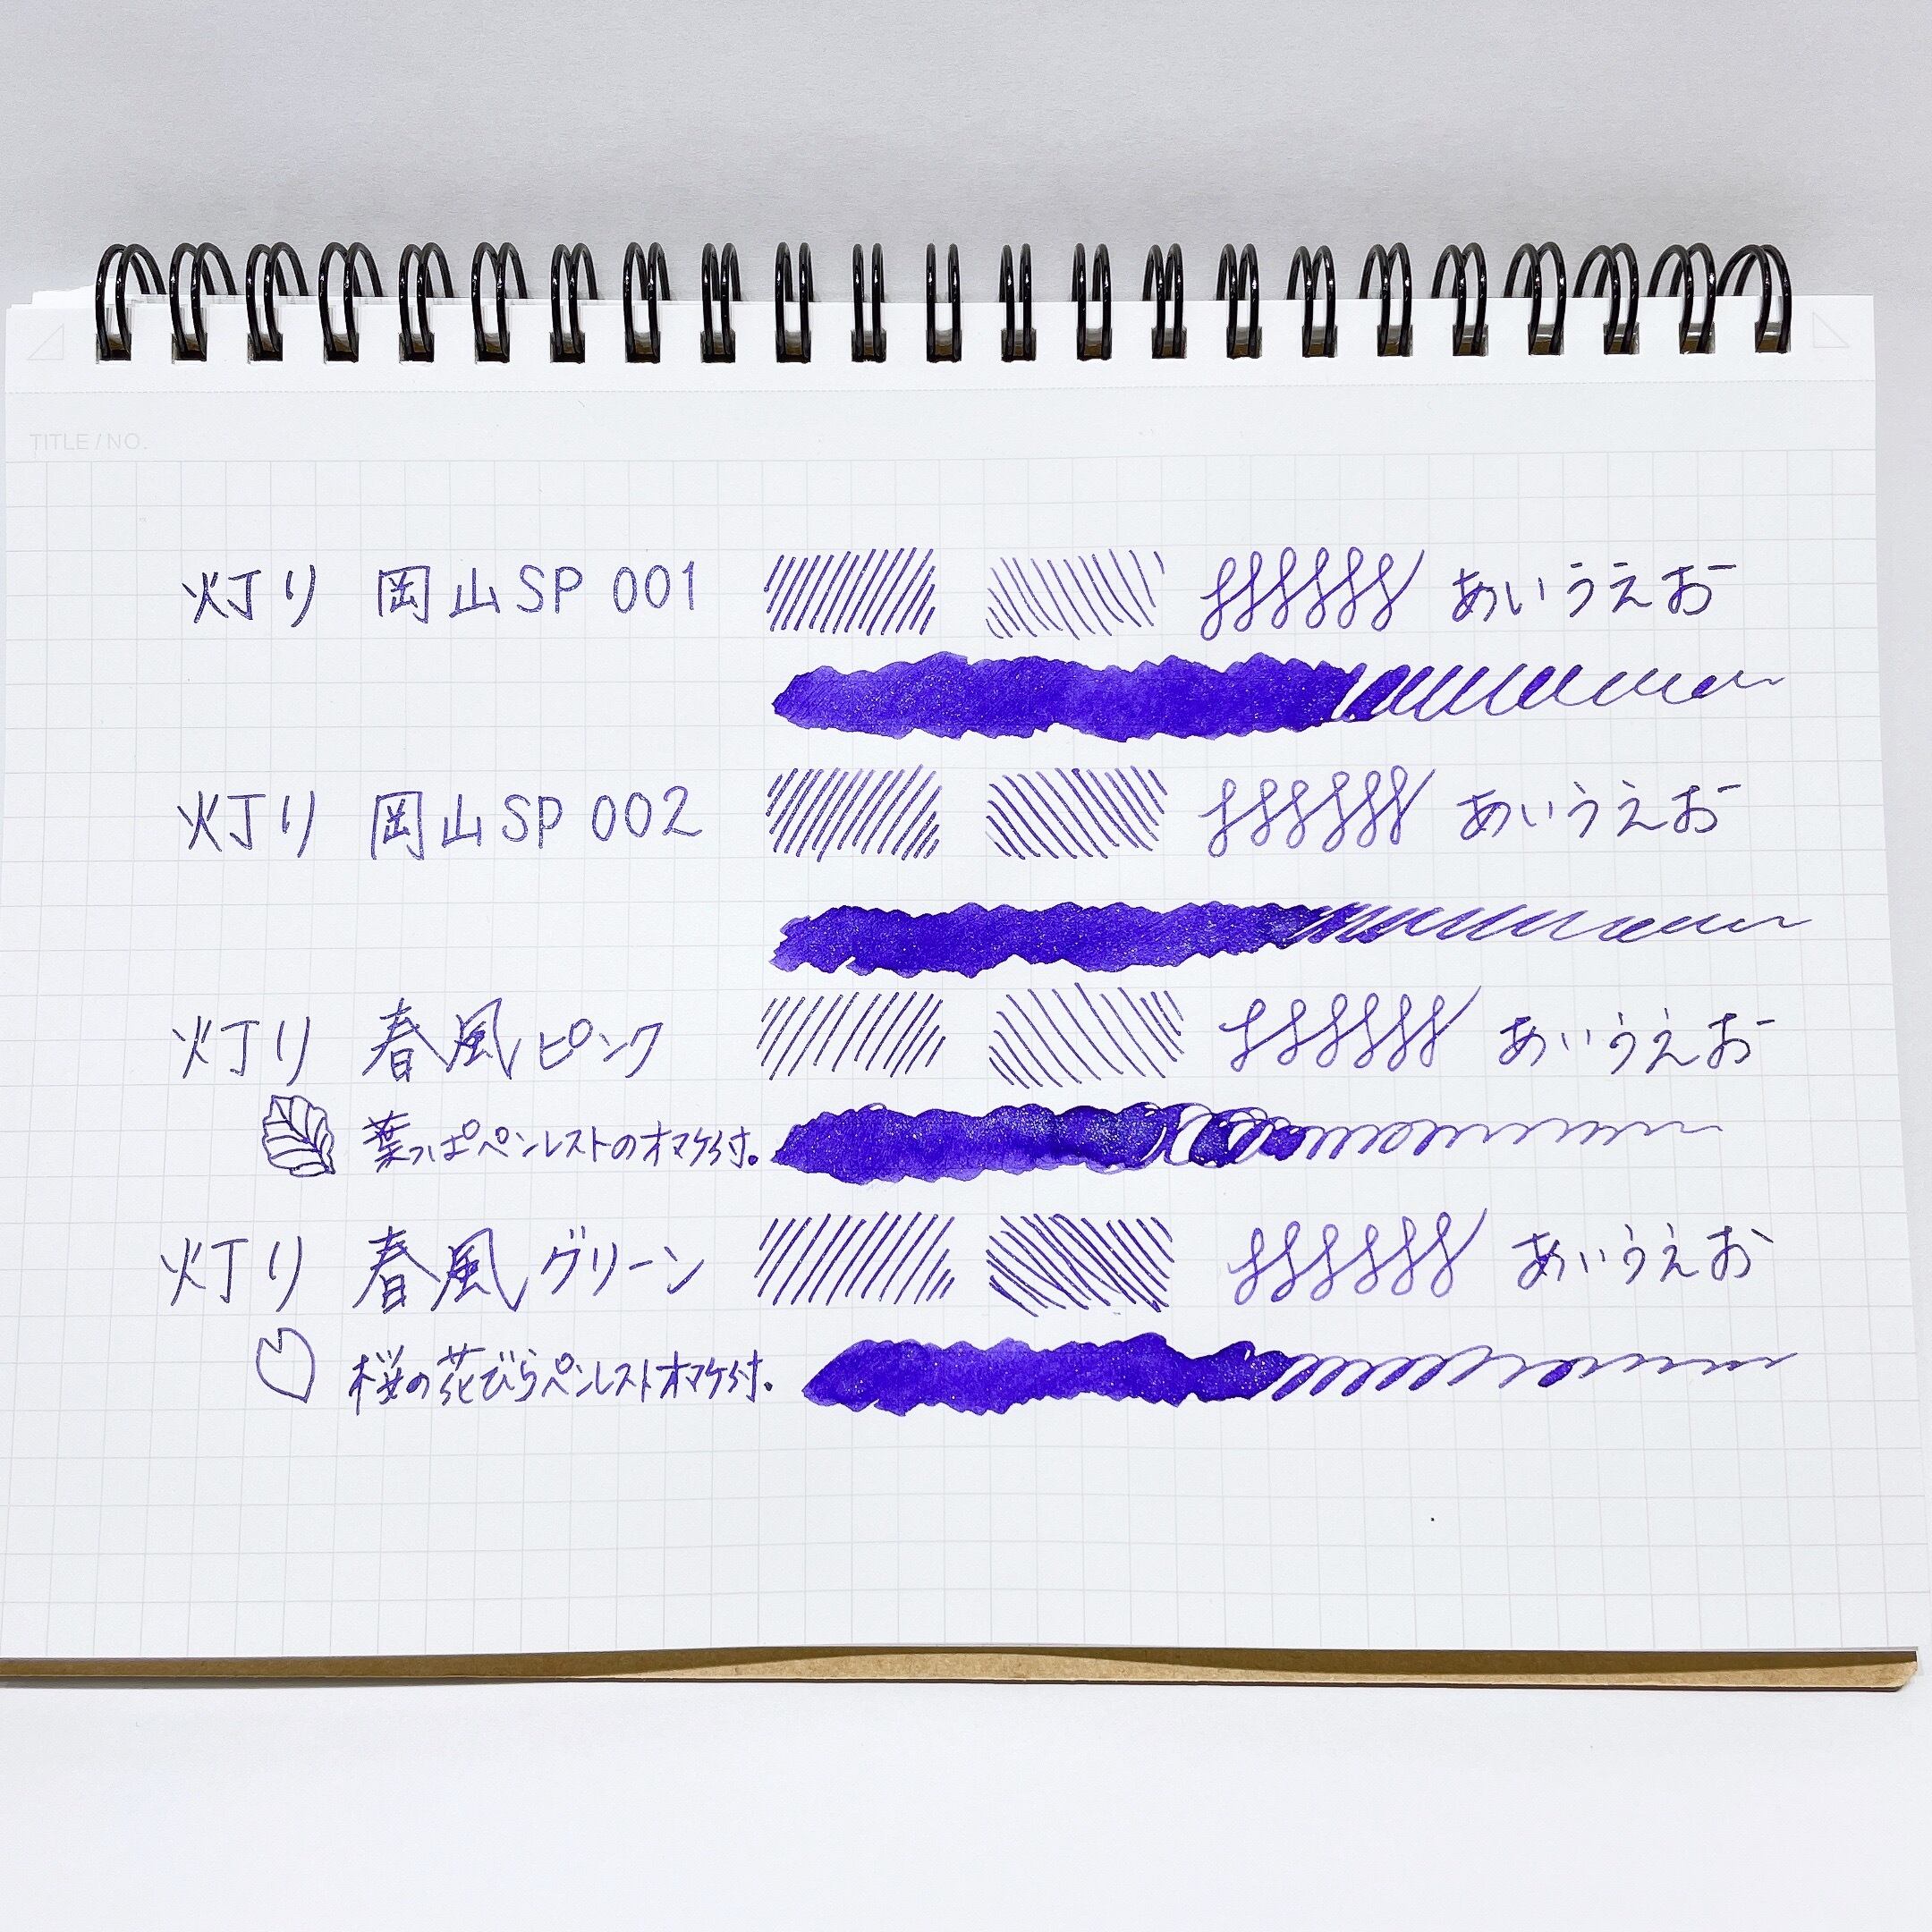 TITLE / NO.
灯り 岡山SP 001 あいうえお
灯り 岡山SP 002 あいうえお
灯り 春風ピンク あいうえお
葉っぱペンレストのオマケ付。
灯り 春風グリーン あいうえお
桜の花びらペンレストオマケ付。